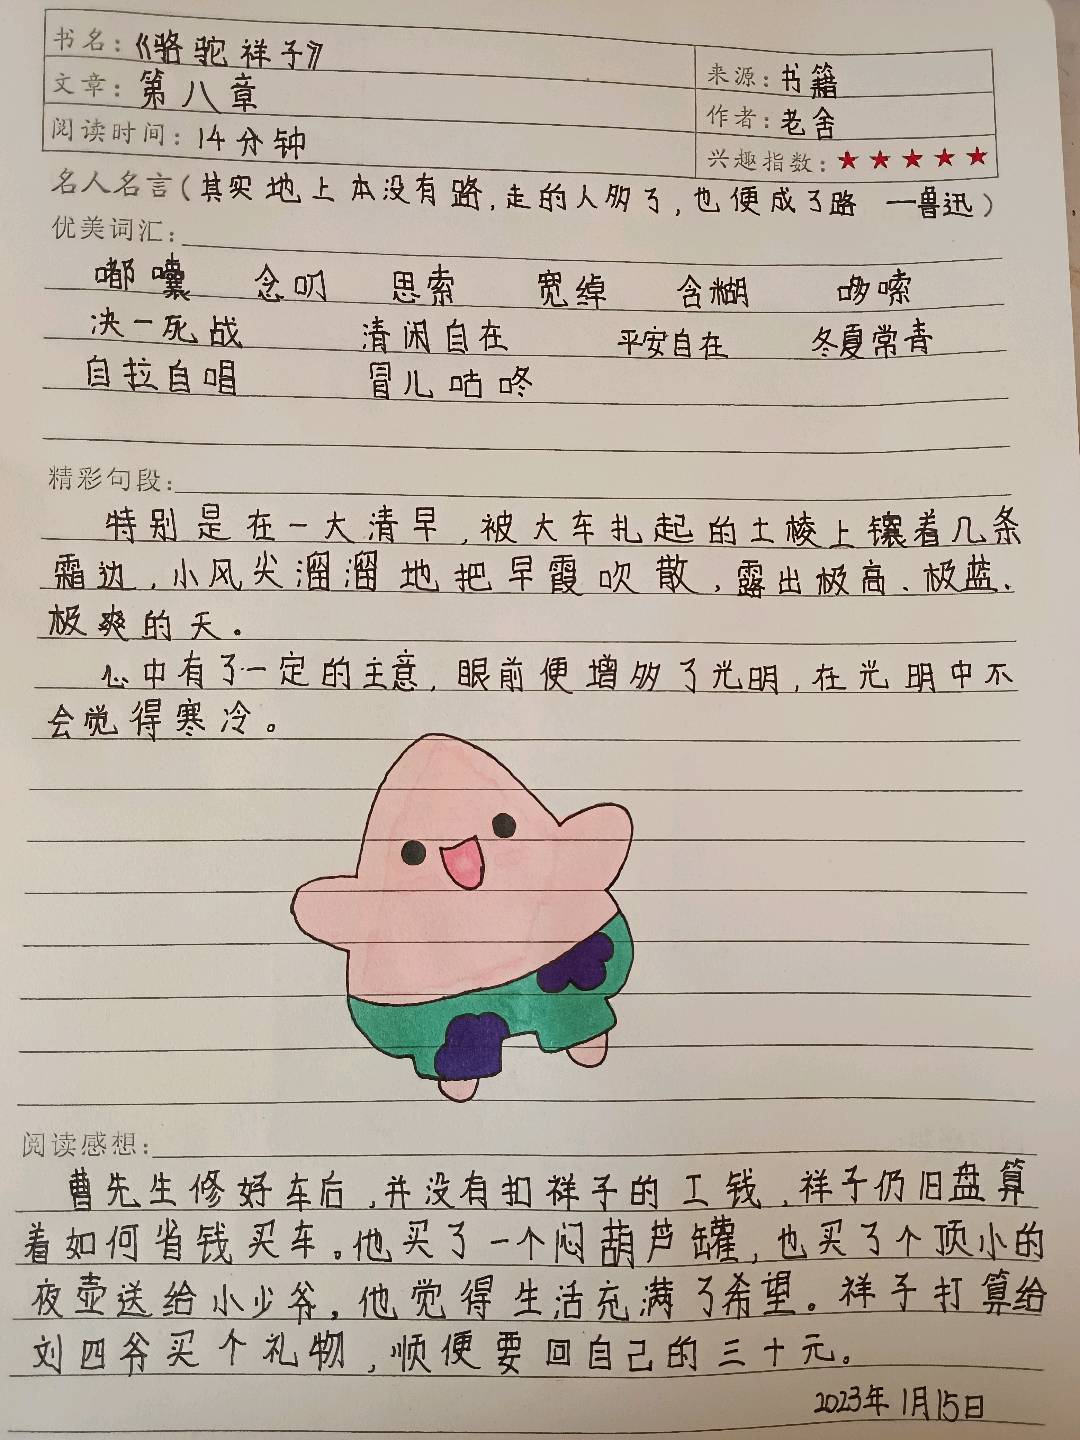 书名：《骆驼祥子》
来源：书籍
文章：第八章
作者：老舍
阅读时间：14分钟
兴趣指数：★★★★★
名人名言（其实地上本没有路，走的人多了，也便成了路 一鲁迅）
优美词汇：
嘟囔 念叨 思索 宽绰 含糊 哆嗦
决一死战 清闲自在 平安自在 冬夏常青
自拉自唱 冒儿咕咚
精彩句段：
特别是在一大清早，被大车扎起的土棱上镶着几条
霜边，小风尖溜溜地把早霞吹散，露出极高、极蓝、
极爽的天。
心中有了一定的主意，眼前便增多了光明，在光明中不
会觉得寒冷。
阅读感想：
曹先生修好车后，并没有扣祥子的工钱，祥子仍旧盘算
着如何省钱买车。他买了一个闷葫芦罐，也买了个顶小的
夜壶送给小少爷，他觉得生活充满了希望。祥子打算给
刘四爷买个礼物，顺便要回自己的三十元。
2023年1月15日